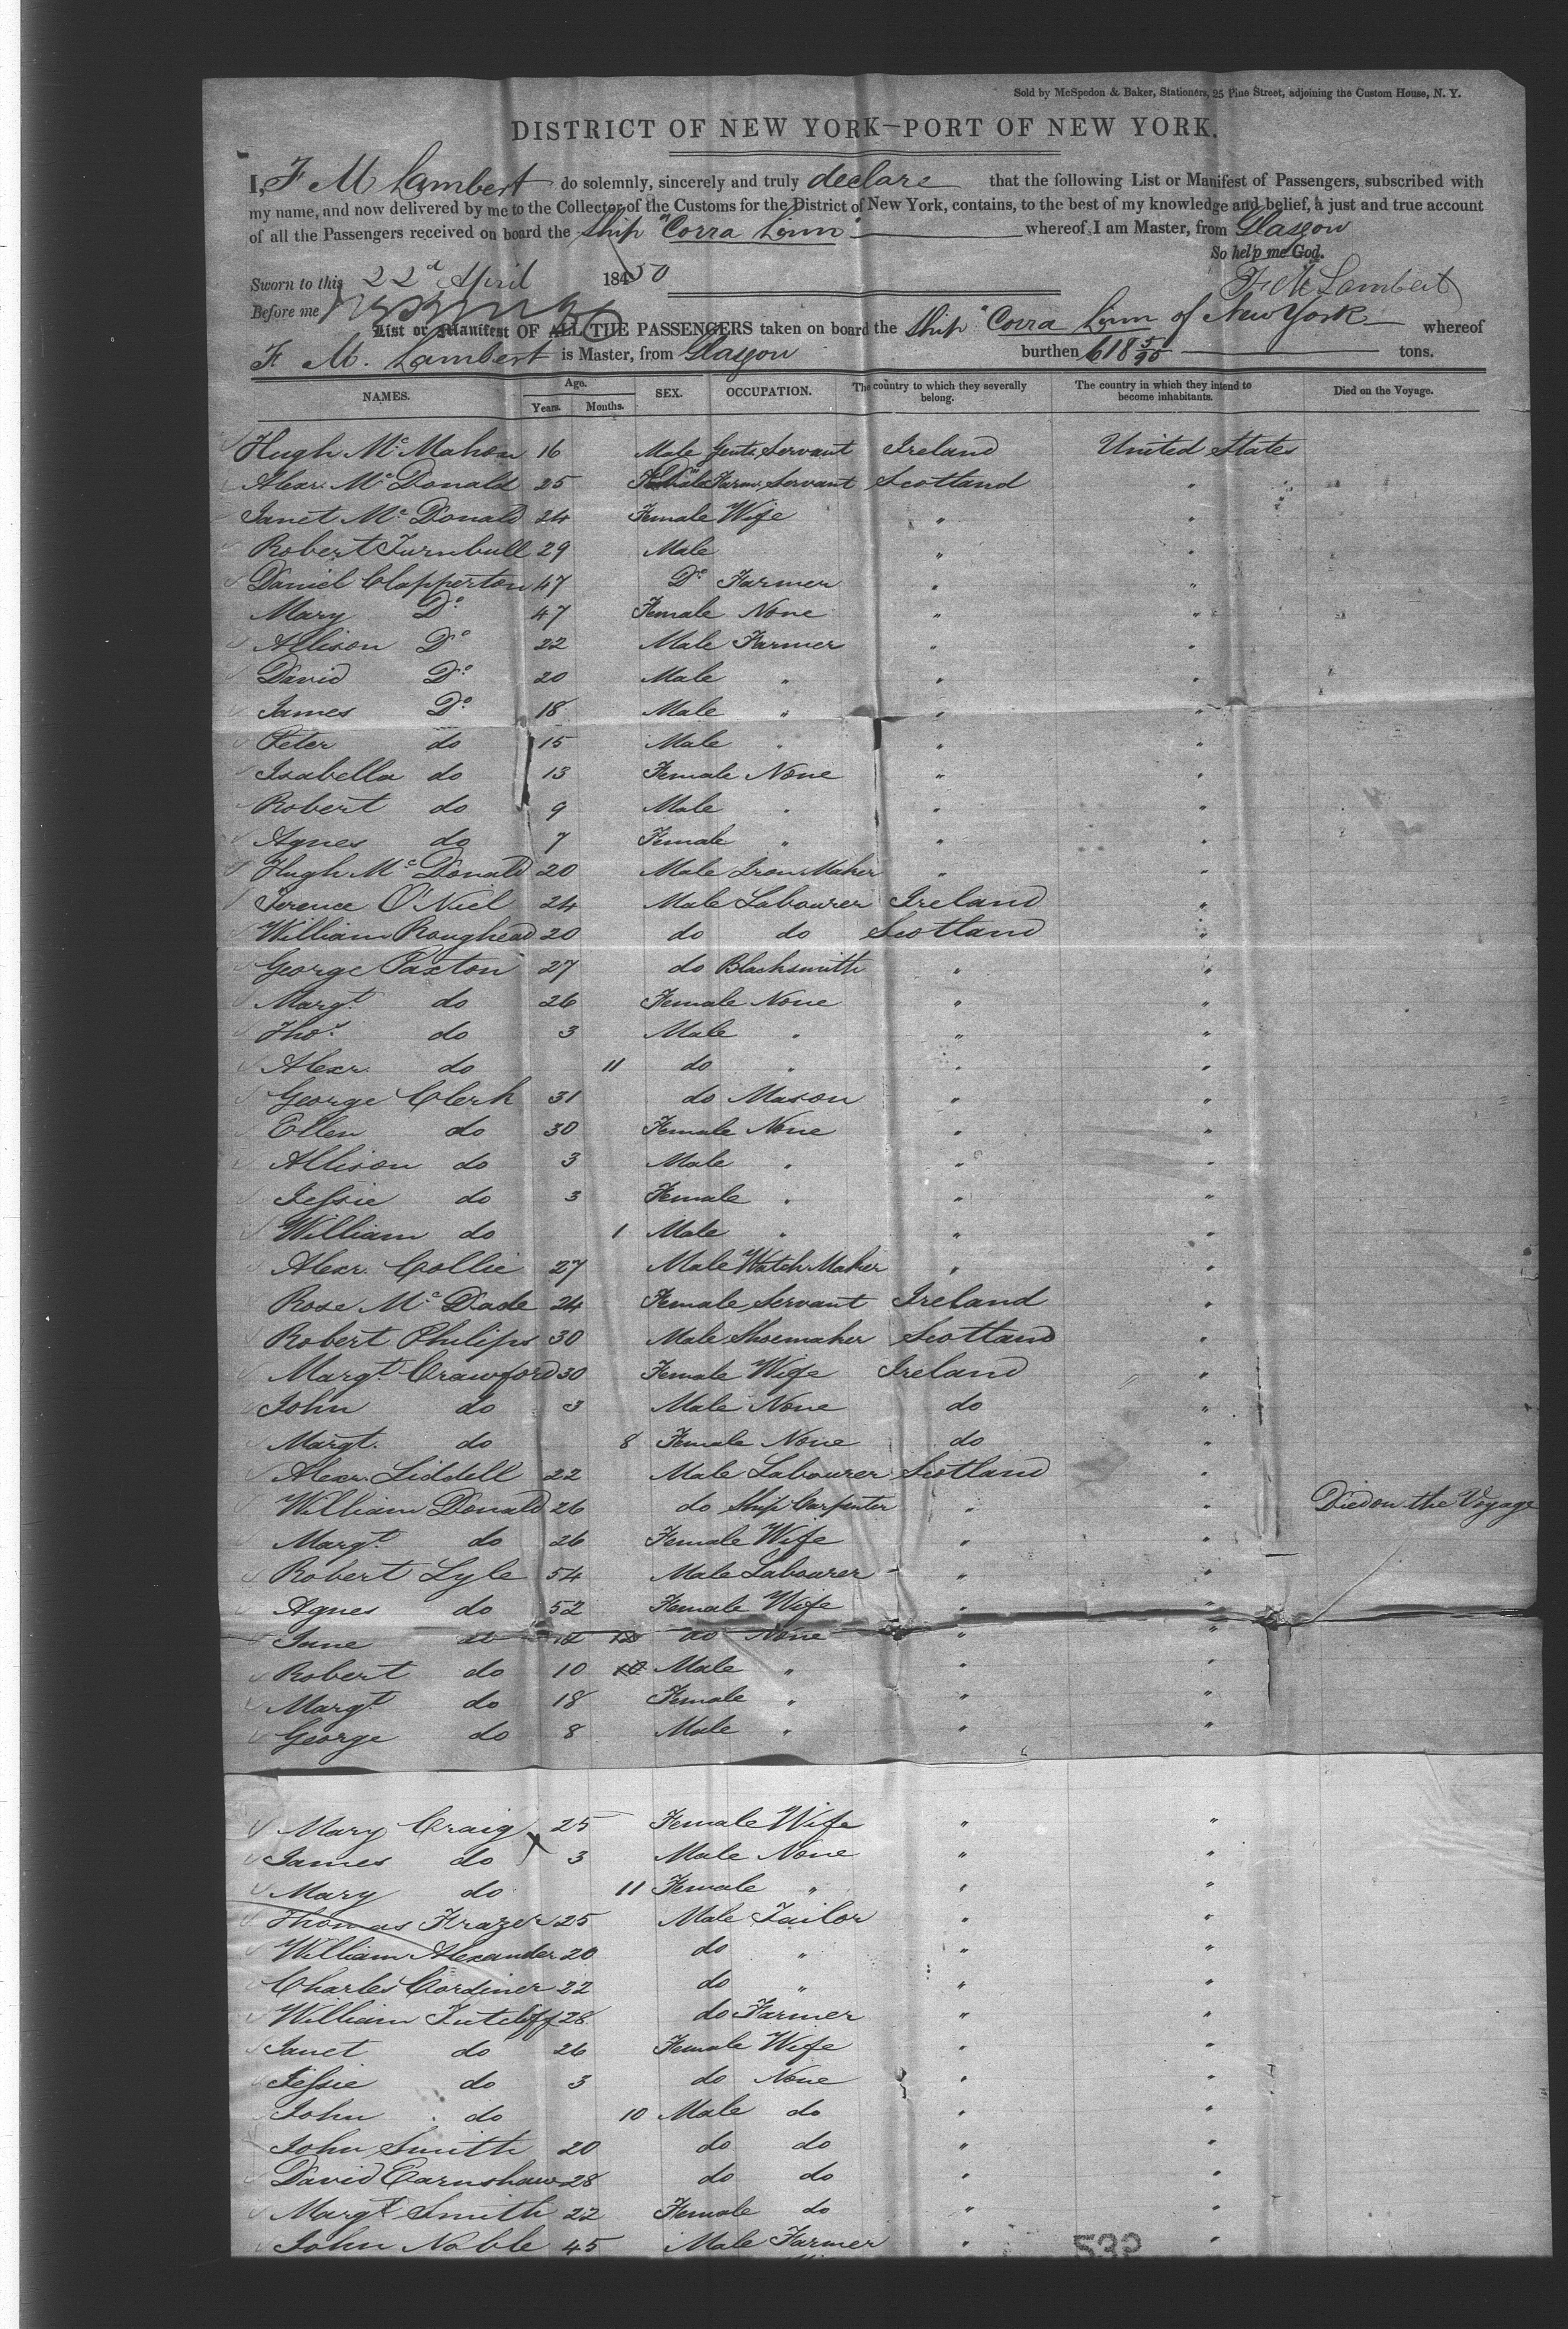 Sold by McSpedon & Baker, Stationers, 25 Pine Street, adjoining the Custom House, N. Y.
DISTRICT OF NEW YORK—PORT OF NEW YORK.
I, F M Lambert do solemnly, sincerely and truly declare that the following List or Manifest of Passengers, subscribed with
my name, and now delivered by me to the Collector of the Customs for the District of New York, contains, to the best of my knowledge and belief, a just and true account
of all the Passengers received on board the Ship "Corra Linn" whereof I am Master, from Glasgow
So help me God.
Sworn to this 22d April 18450 F M Lambert
Before me
List or Manifest OF ALL THE PASSENGERS taken on board the Ship "Corra Linn of New York whereof
F M. Lambert is Master, from Glasgow burthen 618 5/95 tons.
NAMES. Age. Years. Months. SEX. OCCUPATION. The country to which they severally belong. The country in which they intend to become inhabitants. Died on the Voyage.
Hugh Mc Mahon 16 Male Gents Servant Ireland United States
Alexr. Mc Donald 25 Farm Servant Scotland "
Janet Mc Donald 24 Female Wife " "
Robert Turnbull 29 Male " "
Daniel Clapperton 47 Do Farmer " "
Mary Do 47 Female None " "
Allison Do 22 Male Farmer " "
David Do 20 Male " " "
James Do 18 Male " " "
Peter do 15 Male " " "
Isabella do 13 Female None " "
Robert do 9 Male " " "
Agnes do 7 Female " " "
Hugh Mc Donald 20 Male Iron Maker " "
Terence O'Niel 24 Male Labourer Ireland "
William Roughead 20 do do Scotland "
George Paxton 27 do Blacksmith " "
Margt do 26 Female None " "
Thos do 3 Male " " "
Alexr. do 11 do " " "
George Clerk 31 do Mason " "
Ellen do 30 Female None " "
Allison do 3 Male " " "
Jessie do 3 Female " " "
William do 1 Male " " "
Alexr. Collie 27 Male Watch Maker " "
Rose Mc Dade 24 Female Servant Ireland "
Robert Philips 30 Male Shoemaker Scotland "
Margt Crawford 30 Female Wife Ireland "
John do 3 Male None do "
Margt. do 8 Female None do "
Alexr. Liddell 22 Male Labourer Scotland "
William Donald 26 do Ship Carpenter " " Died on the Voyage
Margt do 26 Female Wife " "
Robert Lyle 54 Male Labourer " "
Agnes do 52 Female Wife " "
Jane do 12 12 do None " "
Robert do 10 10 Male " " "
Margt do 18 Female " " "
George do 8 Male " " "
Mary Craig 25 Female Wife " "
James do 3 Male None " "
Mary do 11 Female " " "
Thomas Frazer 25 Male Tailor " "
William Alexander 20 do " " "
Charles Cordiner 22 do " " "
William 28 do Farmer " "
Janet do 26 Female Wife " "
Jessie do 3 do None " "
John do 10 Male do " "
John Smith 20 do do " "
David Earnshaw 28 do do " "
Margt Smith 22 Female do " "
John Noble 45 Male Farmer " "
532